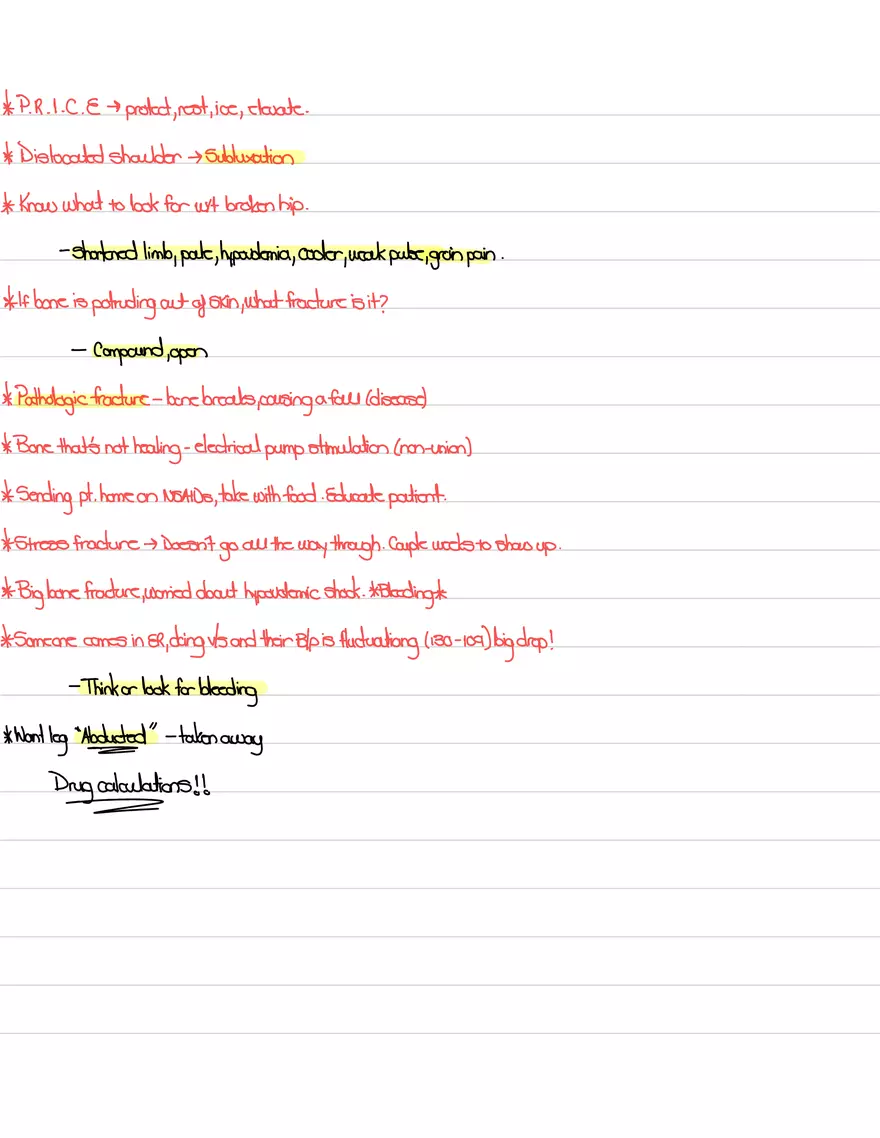 *P.R.I.C.E → protect, rest, ice, elevate.
* Dislocated shoulder → Subluxation
* Know what to look for w/ broken hip.
- Shortened limb, pale, hypovolemia, cooler, weak pulse, groin pain.
*If bone is potruding out of skin, what fracture is it?
- Compound, open
* Pathologic fracture - bone breaks, causing a fall (disease)
*Bone that's not healing - electrical pump stimulation (non-union)
* Sending pt. home on NSAIDs, take with food. Educate patient.
*Stress fracture → Doesn't go all the way through. Couple weeks to show up.
*Big bone fracture, worried about hypovolemic shock. *Bleeding*
*Someone comes in ER, doing v/s and their B/p is fluctuationg (130-109) big drop!
- Think or look for bleeding
*Want leg "Abducted" - taken away
Drug calculations!!